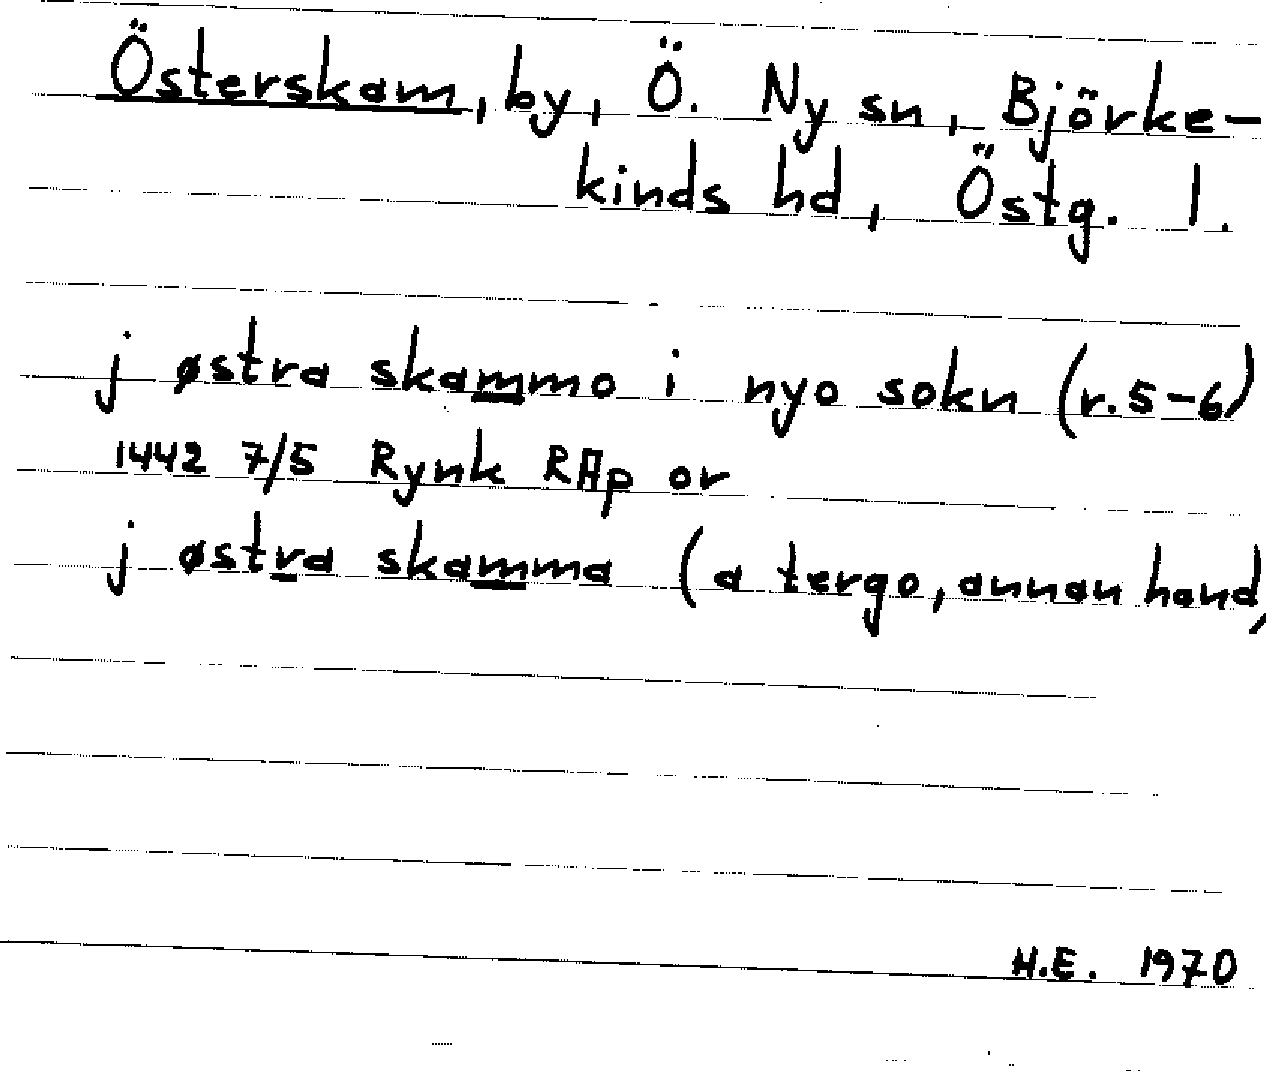 Österskam, by, Ö. Ny sn, Björke-
kinds hd, Östg. l.
j østra skammo i nyo sokn (r. 5-6)
1442 7/5 Rynk RAp or
j østra skamma (a tergo, annan hand,
H.E. 1970